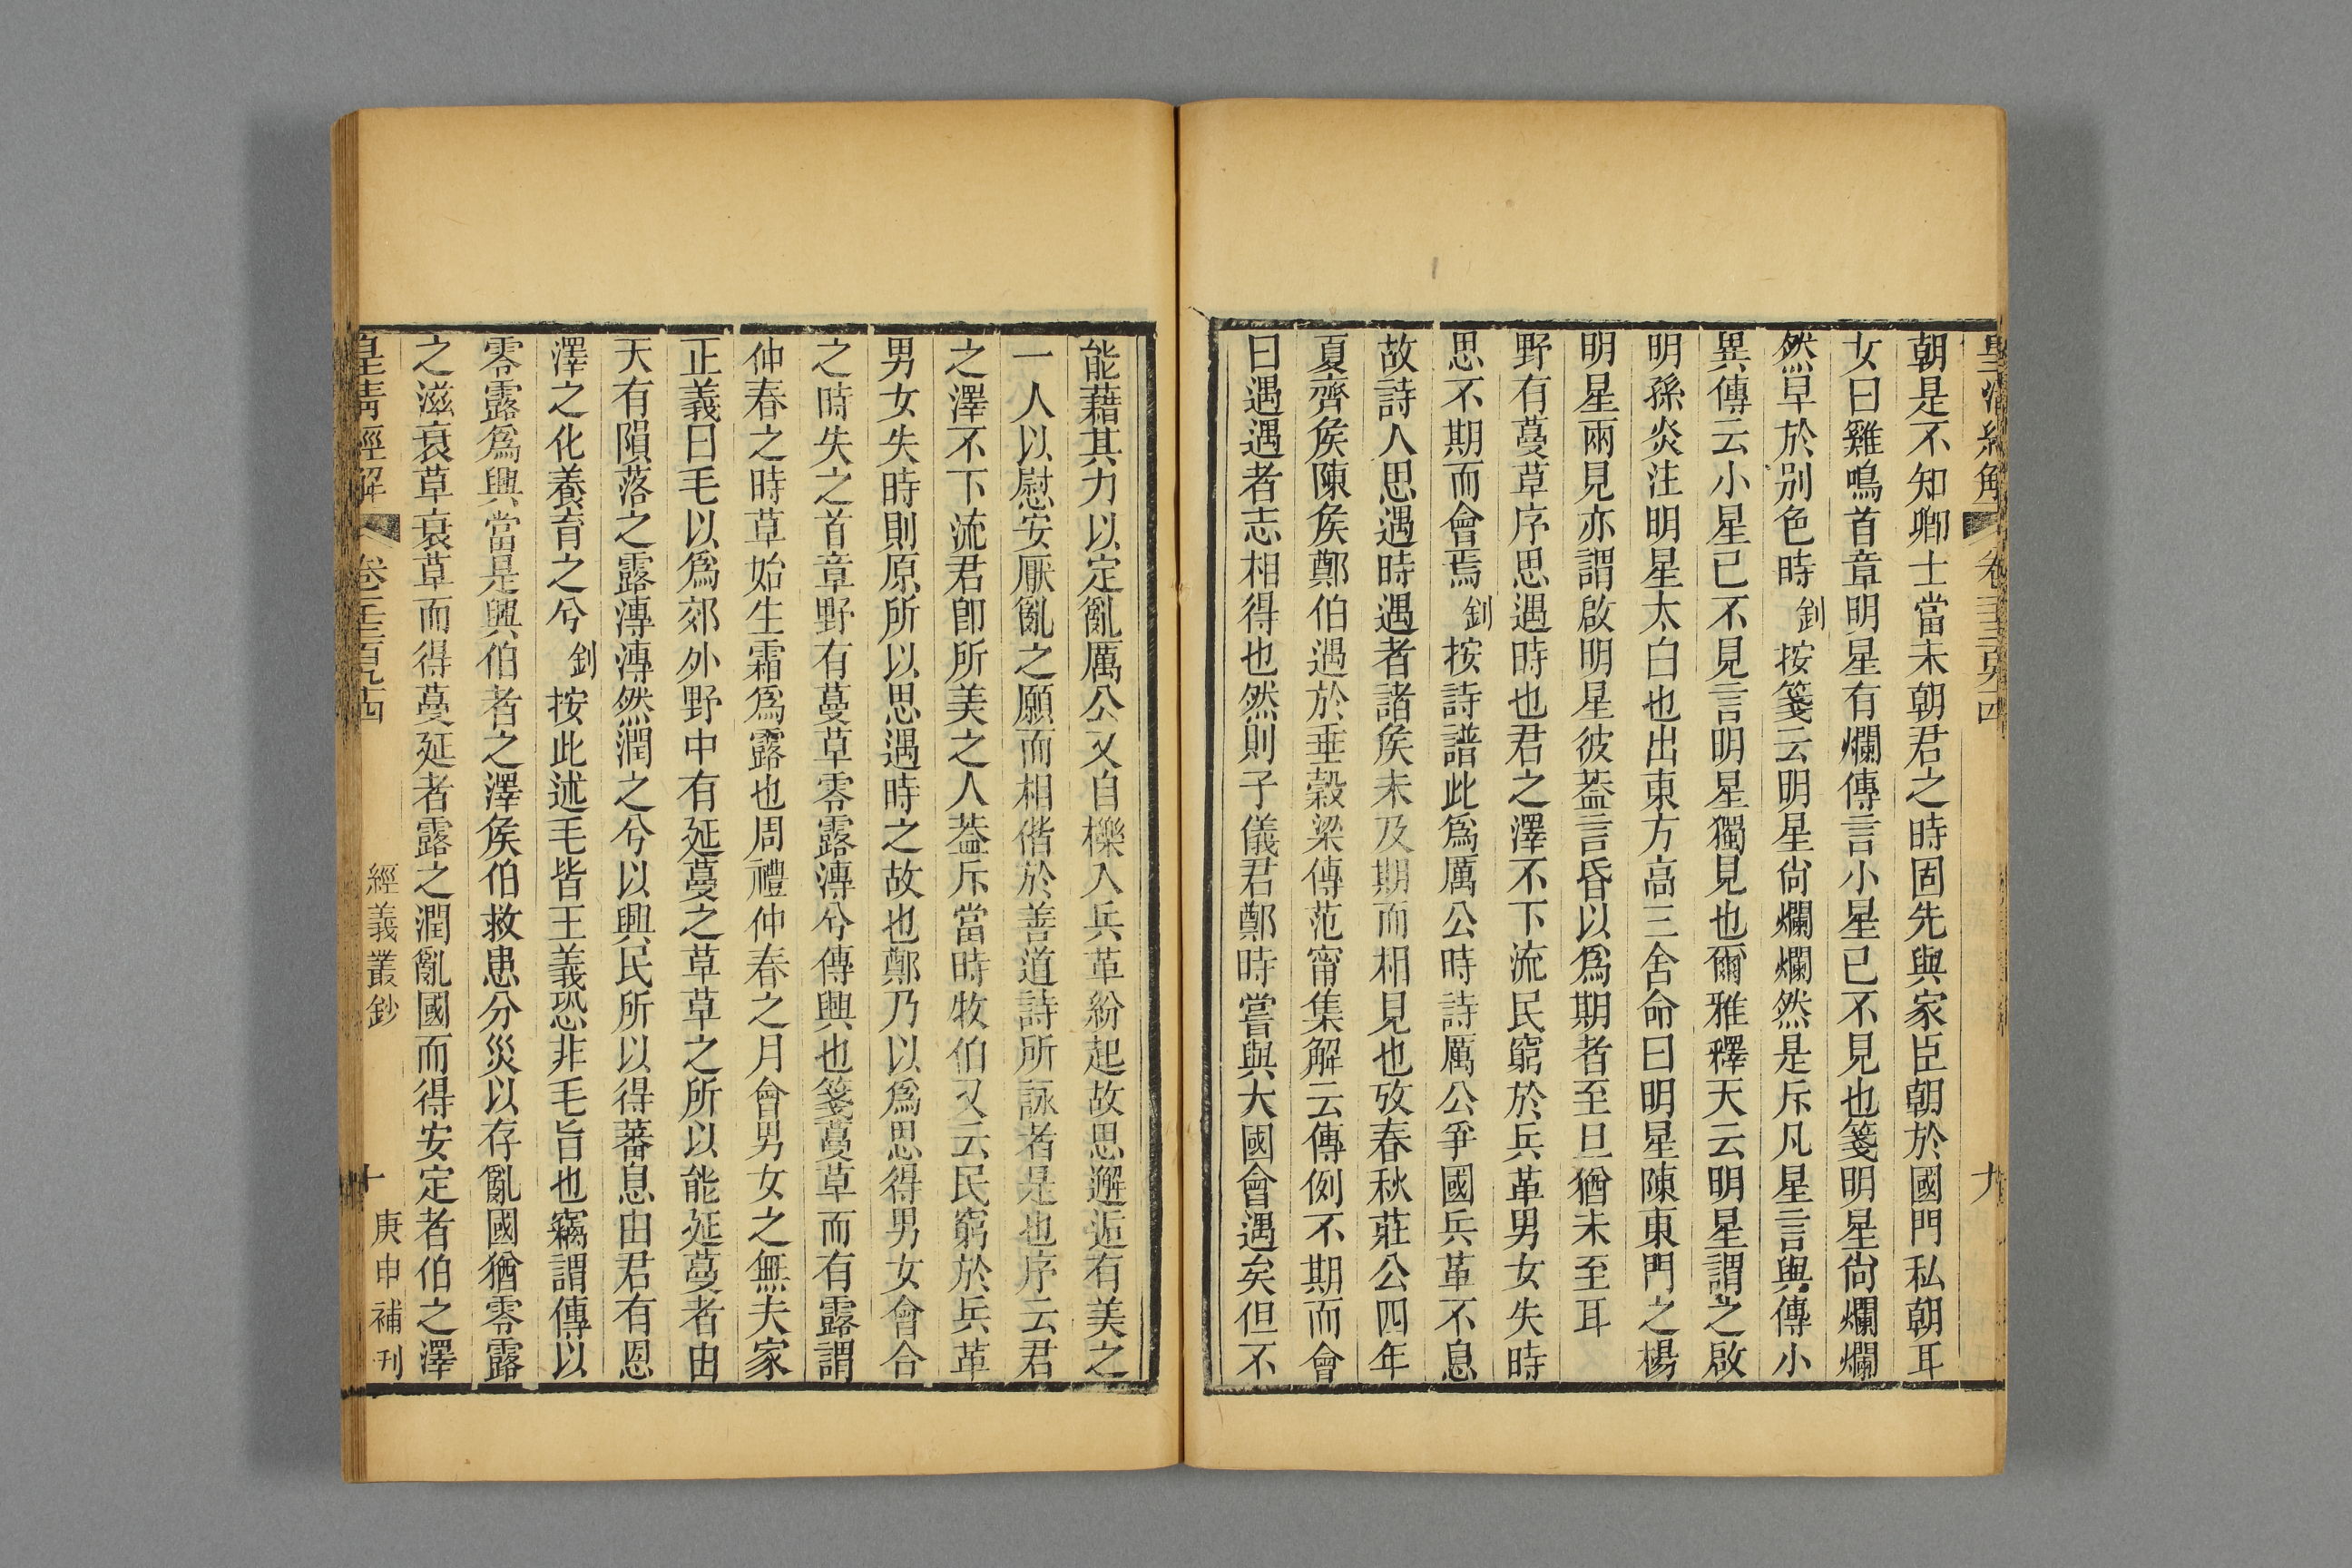 皇清經解 卷
九
朝是不知卿士當未朝君之時固先與家臣朝於國門私朝耳
女曰雞鳴首章明星有爛傳言小星已不見也箋明星尙爛爛
然早於别色時 釗按箋云明星尙爛爛然是斥凡星言與傳小
異傳云小星已不見言明星獨見也爾雅釋天云明星謂之啟
明孫炎注明星太白也出東方高三舍命曰明星陳東門之楊
明星兩見亦謂啟明星彼葢言昏以爲期者至旦猶未至耳
野有蔓草序思遇時也君之澤不下流民窮於兵革男女失時
思不期而會焉 釗按詩譜此爲厲公時詩厲公爭國兵革不息
故詩人思遇時遇者諸矦未及期而相見也攷春秋莊公四年
夏齊矦陳矦鄭伯遇於垂榖梁傳范甯集解云傳例不期而會
曰遇遇者志相得也然則子儀君鄭時嘗與大國會遇矣但不
能藉其力以定亂厲公又自櫟入兵革紛起故思邂逅有美之
一人以慰安厭亂之願而相偕於善道詩所詠者是也序云君
之澤不下流君卽所美之人葢斥當時牧伯又云民窮於兵革
男女失時則原所以思遇時之故也鄭乃以爲思得男女會合
之時失之首章野有蔓草零露漙兮傳興也箋蔓草而有露謂
仲春之時草始生霜爲露也周禮仲春之月會男女之無夫家
正義曰毛以爲郊外野中有延蔓之草草之所以能延蔓者由
天有隕落之露漙漙然潤之兮以興民所以得蕃息由君有恩
澤之化養育之兮 釗按此述毛皆王義恐非毛旨也竊謂傳以
零露爲興當是興伯者之澤矦伯救患分災以存亂國猶零露
之滋衰草衰草而得蔓延者露之潤亂國而得安定者伯之澤
皇清經解 卷 經義叢鈔 十 庚申補刊